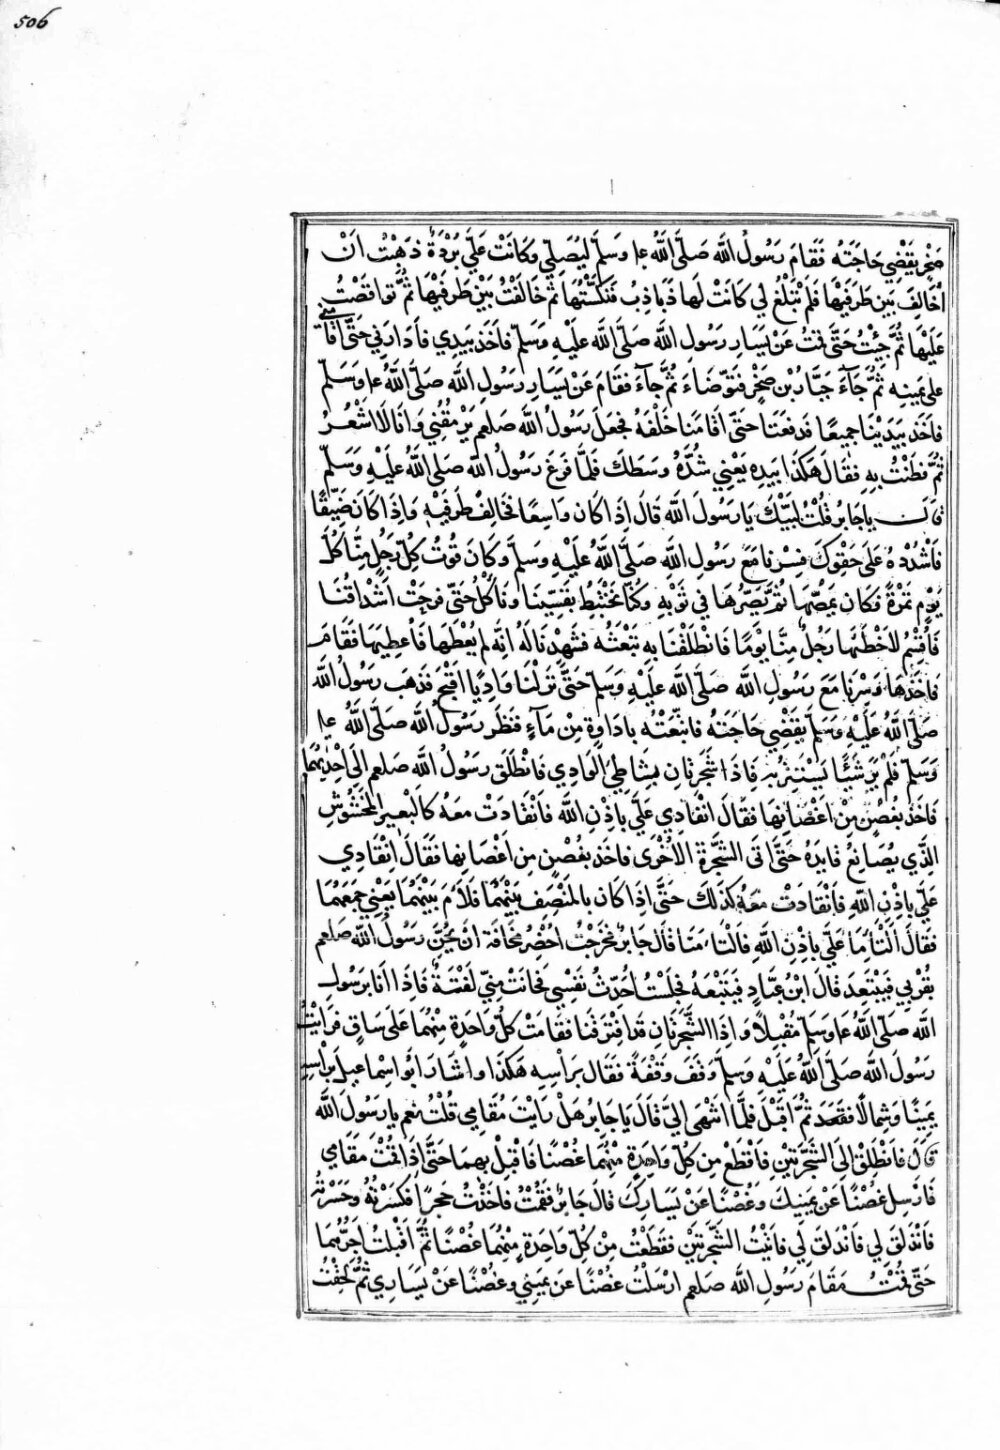 506
صَخْرٍ يَقْضِي حَاجَتَهُ فَقَامَ رَسُولُ اللّٰه صَلَّى اللّٰهُ ع‍ا وَسَلَّمَ لِيُصَلِّي وَكَانَتْ عَلَيَّ بُرْدَةٌ ذَهَبْتُ اَنْ
اُخَالِفَ بَيْنَ طَرَفَيْهَا فَلَمْ تَبْلُغْ لِي كَانَتْ لَهَا ذَبَاذِبُ فَنَكَسْتُهَا ثُمَّ خَالَفْتُ بَيْنَ طَرَفَيْهَا ثُمَّ تَوَاقَصْتُ
عَلَيْهَا ثُمَّ جِئْتُ حَتَّى قُمْتُ عَنْ يَسَارِ رَسُولِ اللّٰه صَلَّى اللّٰهُ عَلَيْهِ وَسَلَّمَ فَاَخَذَ بِيَدِي فَاَدَارَنِي حَتَّى اَقَامَنِي
عَلى يَمِينِهِ ثُمَّ جَآءَ جَبَّارُ بْن صَخْرٍ فَتَوَضَّاَءَ ثُمَّ جَآءَ فَقَامَ عَنْ يَسَارِ رَسُولِ اللّٰه صَلَّى اللّٰهُ ع‍ا وَسَلَّمَ
فَاَخَذَ بِيَدَيْنَا جَمِيعًا فَدَفَعَنَا حَتَّى اَقَامَنَا خَلْفَهُ فَجَعَلَ رَسُولُ اللّٰه صلعم يَرْمُقُنِي وَاَنَا لَا اَشْعُرُ
ثُمَّ فَطَنْتُ بِهِ فَقَالَ هَكَذَا بِيَدِهِ يَعْنِي شُدَّ وَسَطَكَ فَلَمَّا فَرَغَ رَسُولُ اللّٰه صَلَّى اللّٰهُ عَلَيْهِ وَسَلَّمَ
قَالَ يَا جَابِرُ قُلْتُ لَبَّيْكَ يَا رَسُولَ اللّٰه قَالَ اِذَا كَان وَاسِعًا فَخَالِفْ طَرَفَيْهِ وَاِذَا كَانَ ضَيِّقًا
فَاشْدُدْهُ عَلَى حَقْوِكَ فَسِرْنَا مَعَ رَسُولِ اللّٰه صَلَّى اللّٰهُ عَلَيْهِ وَسَلَّمَ وَكَانَ قُوتُ كُلِّ رَجُلٍ مِنَّا كُلَّ
يَوْمٍ تَمْرَةً فَكَان يَمَصُّهَا ثُمَّ يَصُرُّهَا فِي ثَوْبِهِ وَكُنَّا نَخْتَبِطُ بِقِسِيِّنَا وَنَاْكُلُ حَتَّى قَرِحَتْ اَشْدَاقُنَا
فَاُقْسِمُ لَاُخْطِئَهَا رَجُلٌ مِنَّا يَوْمًا فَانْطَلَقْنَا بِهِ نَنْعَشُهُ فَشَهِدْنَا لَهُ اَنَّهُ لَمْ يُعْطَهَا فَاُعْطِيَهَا فَقَامَ
فَاَخَذَهَا وَسِرْنَا مَعَ رَسُولِ اللّٰه صَلَّى اللّٰهُ عَلَيْهِ وَسَلَّمَ حَتَّى نَزَلْنَا وَادِيًا اَفْيَحَ فَذَهَبَ رَسُولُ اللّٰه
صَلَّى اللّٰهُ عَلَيْهِ وَسَلَّمَ يَقْضِي حَاجَتَهُ فَاتَّبَعْتُهُ بِاِدَاوَةٍ مِنْ مَآءٍ فَنَظَرَ رَسُولُ اللّٰه صَلَّى اللّٰهُ ع‍ا
وَسَلَّمَ فَلَمْ يَرَ شَيْئًا يَسْتَتِرُ بِهِ فَاِذَا شَجَرَتَانِ بِشَاطِئِ الْوَادِي فَانْطَلَقَ رَسُولُ اللّٰه صلعم اِلَى اِحْدَيهُمَا
فَاَخَذَ بِغُصْنٍ مِنْ اَغْصَانِهَا فَقَالَ انْقَادِي عَلَيَّ بِاِذْنِ اللّٰه فَانْقَادَتْ مَعَهُ كَالْبَعِيرِ الْمَخْشُوشِ
الَّذِي يُصَانِعُ قَائِدَهُ حَتَّى اَتَى الشَّجَرَةَ الْاُخْرَى فَاَخَذَ بِغُصْنٍ مِن اَغْصَانِهَا فَقَالَ انْقَادِي
عَلَيَّ بِاِذْنِ اللّٰهِ فَانْقَادَتْ مَعَهُ كَذَلَكَ حَتَّى اِذَا كَان بِالْمَنْصَفِ بَيْنَهُمَا فَلَاَمَ بَيْنَهُمَا يَعْنِي جَمَعَهُمَا
فَقَالَ الْتَئِمَا عَلَيَّ بِاِذْنِ اللّٰهِ فَالْتَاَمَتَا قَالَ جَابِرٌ فَخَرَجْتُ اُحْضِرُ مَخَافَةَ اَنْ يُحِسَّ رَسُولُ اللّٰه صلعم
بِقُرْبِي فَيَبْتَعِدَ قَالَ ابْنُ عَبَّادٍ فَيَتَبَعَّدَ فَجَلَسْتُ اُحَدِّثُ نَفْسِي فَحَانَتْ مِنِّي لَفْتَةٌ فَاِذَا اَنَا بِرَسُولِ
اللّٰه صَلَّى اللّٰهُ ع‍ا وَسَلَّمَ مُقْبِلًا وَاِذَا الشَّجَرَتَانِ قَدِ افْتَرَقَتَا فَقَامَتْ كُلُّ وَاحِدَةٍ مِنْهُمَا عَلَى سَاقٍ فَرَاَيْتُ
رَسُولَ اللّٰه صَلَّى اللّٰهُ عَلَيْهِ وَسَلَّمَ وَقَفَ وَقْفَةً فَقَال بِرَاْسِهِ هَكَذَا وَاَشَارَ اَبُو اِسْمَاعِيلَ بِرَاْسِهِ
يَمِينًا وَشِمَالًا فَقَعَدَ ثُمَّ اَقْبَلَ فَلَمَّا انْتَهَى اِلَيَّ قَالَ يَا جَابِرُ هَلْ رَاَيْتَ مُقَامِي قُلْتُ نَعَم يَا رَسُولَ اللّٰه
قَالَ فَانْطَلِقْ اِلَى الشَّجَرَتَيْنِ فَاقْطَعْ مِن كُلِّ وَاحِدَةٍ مِنْهُمَا غُصْنًا فَاَقْبِلْ بِهِمَا حَتَّى اِذَا قُمْتَ مَقَامِي
فَاَرْسِل غُصْنًا عَنْ يَمِينِكَ وَغُصْنًا عَنْ يَسَارِكَ قَالَ جَابِرٌ فَقُمْتُ فَاَخَذْتُ حَجَرًا فَكَسَرْتُهُ وَحَسَرْتُهُ
فَانْذَلَقَ لِي فَانْدَلَقَ لِي فَاَتَيْتُ الشَّجَرَتَيْنِ فَقَطَعْتُ مِنْ كُلِّ وَاحِدَةٍ مِنْهُمَا غُصْنًا ثُمَّ اَقْبَلْتُ اَجُرُّهُمَا
حَتَّى قُمْتُ مَقَامَ رَسُولِ اللّٰه صلعم اَرْسَلْتُ غُصْنًا عَن يَمِينِي وَغُصْنًا عَنْ يَسَارِي ثُمَّ لَحِقْتُ